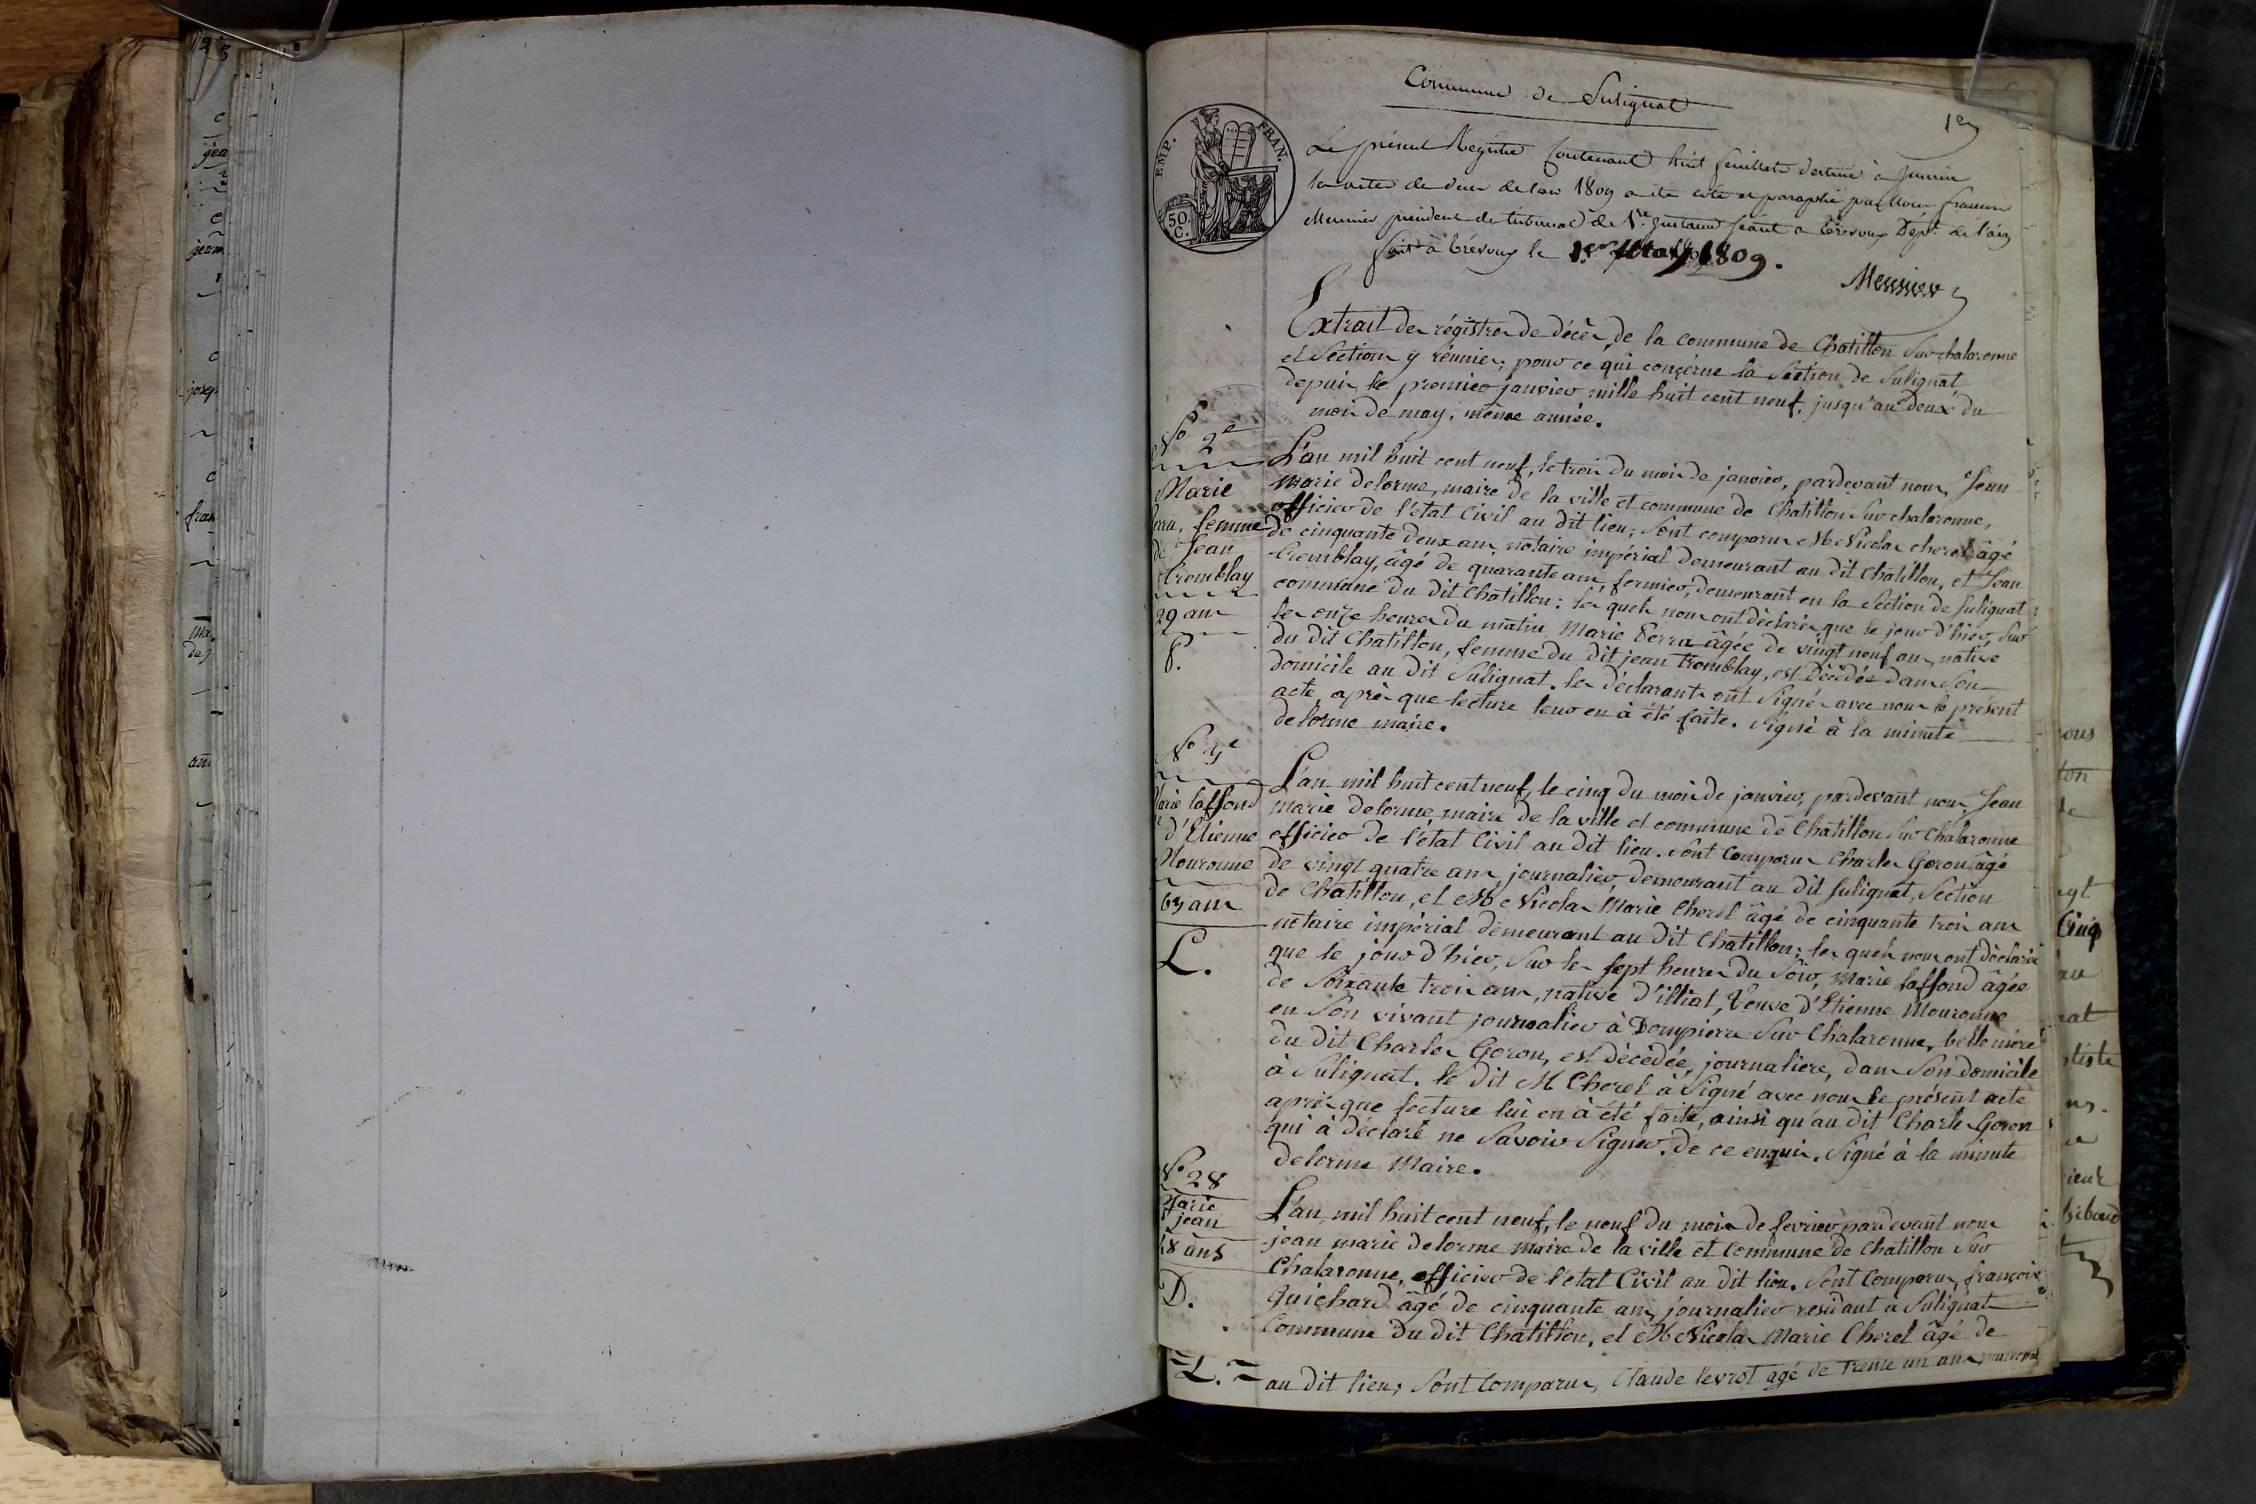 Commune de Sulignat
1er
EMP. FRAN.
50. C.
Le présent Registre Contenant huit feuillets destiné à
les actes de décès de l'an 1809 a été coté et paraphé par Nous françois
Meunier président du tribunal de 1re Instance séant a trévoux Dépt de l'ain
fait à trévoux le 1er May 1809.
Meunier
Extrait des régistres de décès, de la commune de Chatillon Sur chalaronne
et Sections y réunies; pour ce qui concerne la Section de Sulignat
depuis le premier janvier mille huit cent neuf, jusqu'au deux du
mois de may, même année.
No 2e
Marie
ferra, femme
de Jean
tremblay
29 ans
f.
L'an mil huit cent neuf, le trois du mois de janvier, pardevant nous, Jean
Marie delorme, maire de la ville et commune de Chatillon Sur chalaronne,
officier de l'état Civil au dit lieu; Sont comparus Me Nicolas cherel âgé
de cinquante deux ans notaire impérial demeurant au dit chatillon, et Jean
tremblay, âgé de quarante ans, fermier, demeurant en la Section de Sulignat
commune du dit Chatillon: les quels nous ont déclarés que le jour d'hier, Sur
les onze heures du matin, Marie ferra âgée de vingt neuf ans, native
du dit Chatillon, femme du dit jean tremblay, est Décédée dans Son
domicile au dit Sulignat. les déclarants ont Signés avec nous le présent
acte, après que lecture leur en à été faite. Signé à la minute
delorme maire.
Marie laffond
d'Etienne
Mouronne
63 ans
L.
L'an mil huit cent neuf, le cinq du mois de janvier, pardevant nous, Jean
marie delorme, maire de la ville et commune de Chatillon Sur Chalaronne
officier de l'état Civil au dit lieu. Sont Comparus Charles Goron âgé
de vingt quatre ans, journalier, demeurant au dit Sulignat, Section
de Chatillon, et Me Nicolas Marie Cherel âgé de cinquante trois ans
notaire impérial demeurant au dit Chatillon; les quels nous ont déclarés
que le jour d'hier, Sur les sept heures du Soir, Marie laffond âgée
de Soixante trois ans, native d'illiat, Veuve d'Etienne Mouronne
en Son vivant journalier à Dompierre Sur Chalaronne, belle mère
du dit Charles Goron, est décédée, journaliere, dans Son domicile
à Sulignat. le dit Me Cherel à Signé avec nous le présent acte
après que lecture lui en à été faite, ainsi qu'au dit Charles Goron
qui à déclaré ne Savoir Signer. de ce enquis. Signé à la minute
delorme Maire.
No 28
Marie
jean
48 ans
D.
L'an mil huit cent neuf, le neuf du mois de fevrier pardevant nous
jean marie delorme maire de la ville et Commune de Chatillon Sur
Chalaronne, officier de l'état Civil au dit lieu. Sont Comparus, françois
Guichard âgé de cinquante ans, journalier residant a Sulignat
Commune du dit Chatillon, et Me Nicolas Marie Cherel âgé de
L.
au dit lieu; Sont Comparus, Claude levrot agé de Trente un ans